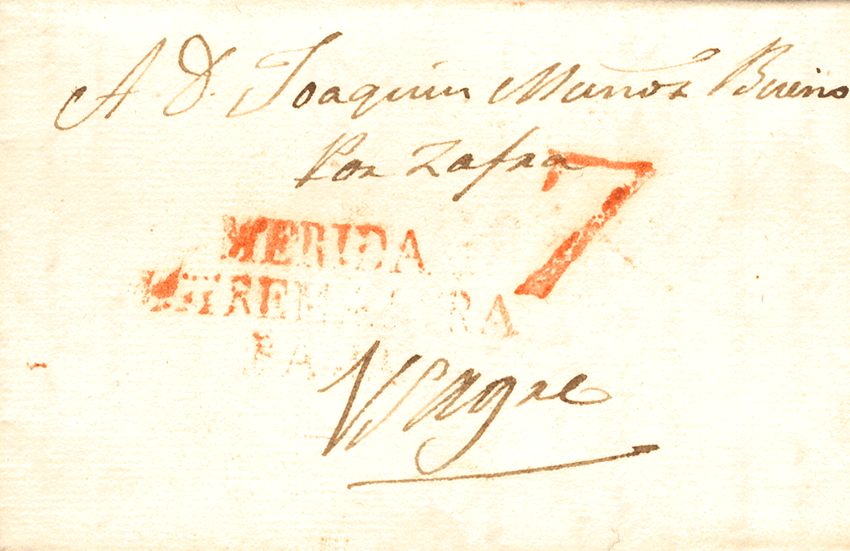 A D. Joaquin Muñoz Bueno
Por Zafra
7
MERIDA
ESTREMADURA
BAJA
Usagre